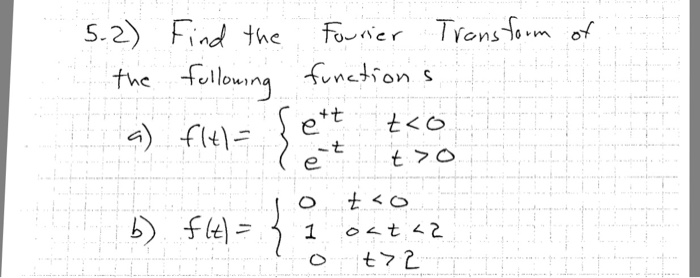 5.2) Find the Fourier Transform of
the following functions
a) f(t) = { e^{+t} t<0
e^{-t} t>0
0 t<0
b) f(t) = { 1 0<t<2
0 t>2